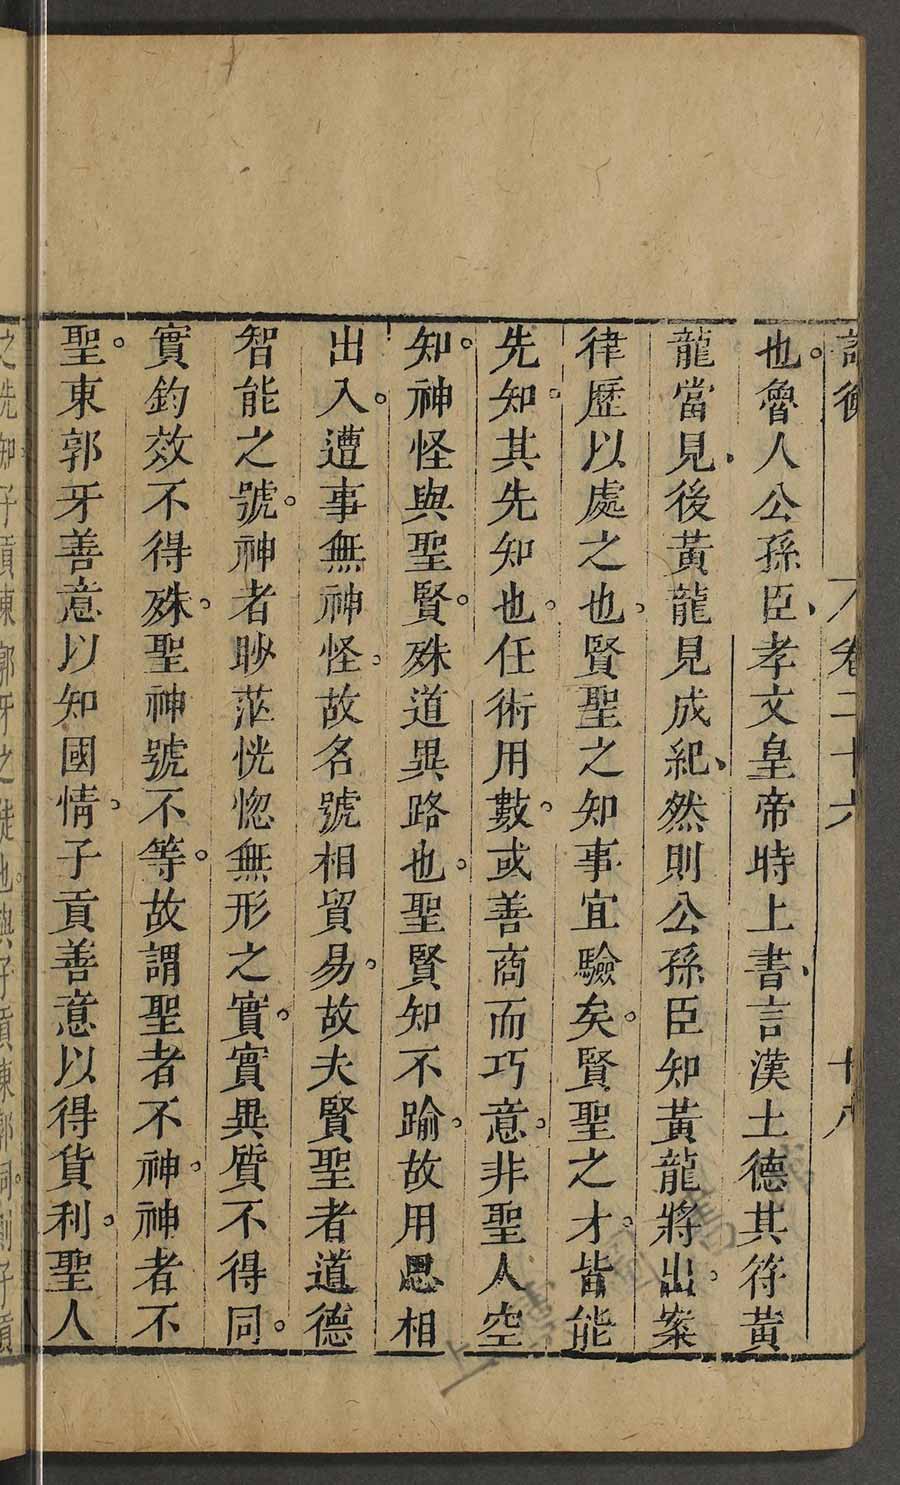 論衡 卷二十六 十八
也。魯人公孫臣、孝文皇帝時上書、言漢土德其符黃
龍當見、後黃龍見成紀、然則公孫臣知黃龍將出。案
律歷以處之也。賢聖之知事宜驗矣。賢聖之才。皆能
先知。其先知也。任術用數。或善商而巧意。非聖人空
知。神怪與聖賢。殊道異路也。聖賢知不踰。故用思相
出入。遭事無神怪。故名號相貿易。故夫賢聖者道德
智能之號。神者眇茫恍惚無形之實。實異質不得同。
實鈞效不得殊。聖神號不等。故謂聖者不神。神者不
聖。東郭牙善意以知國情。子貢善意以得貨利。聖人
之先知子貢東郭牙之徒也。與子貢東郭同。則子貢